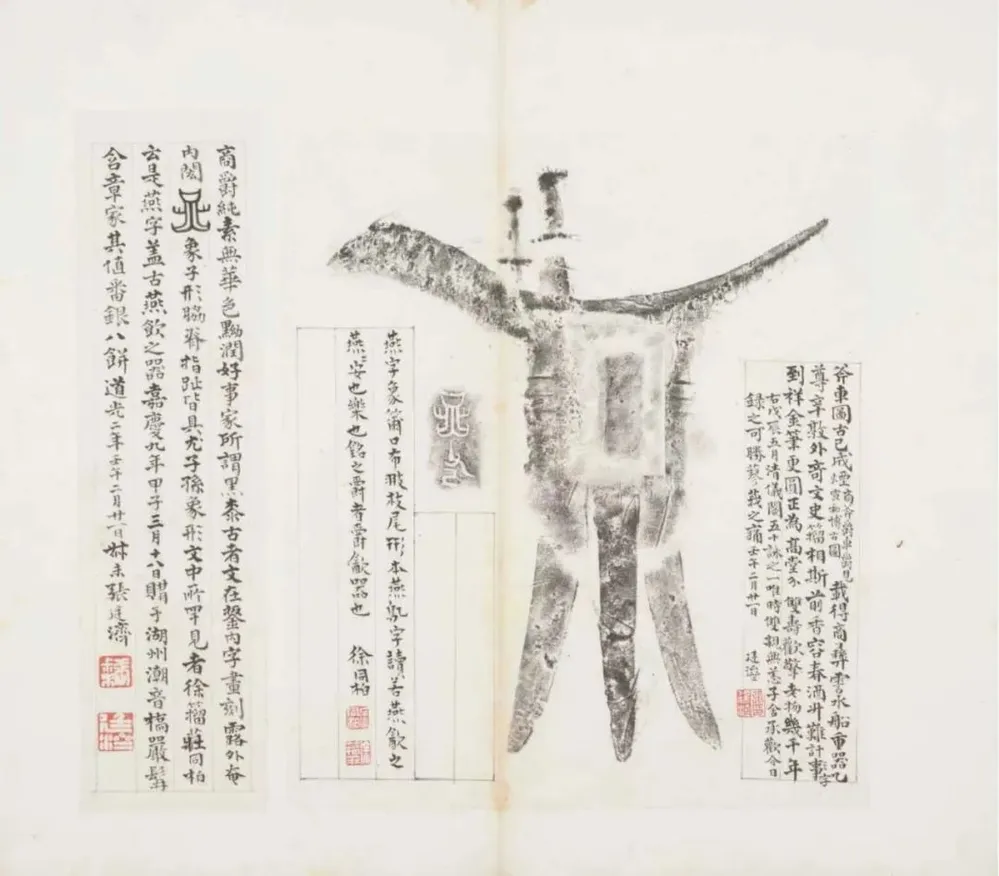 斧車圖古已成煙 商斧爵車爵見
宣和博古圖 載得商彝雲水船重器乙
尊辛敦外奇文史籀相斯前香容春酒升難計字
到祥金筆更圓正為高堂介雙壽歡擎老物幾千年
右戊辰五月清儀閣五十詠之一唯時雙親興養子舍承歡今日
錄之可勝蓼莪之痛壬午二月廿一日 廷濟
燕字象籋口布翄枝尾形本燕乳字讀若燕飲之
燕燕安也樂也銘之爵者爵飲器也 徐同柏
商爵純素無華色黝潤好事家所謂黑桼古者文在鋬內字畫刻露外奄
內閎 象子形脇脊指趾皆具尤子孫象形文中所罕見者徐籀莊同柏
云是燕字蓋古燕飲之器嘉慶九年甲子三月十八日購于湖州潮音橋嚴髯
含章家其值番銀八餅道光二年壬午二月廿一日叔未張廷濟